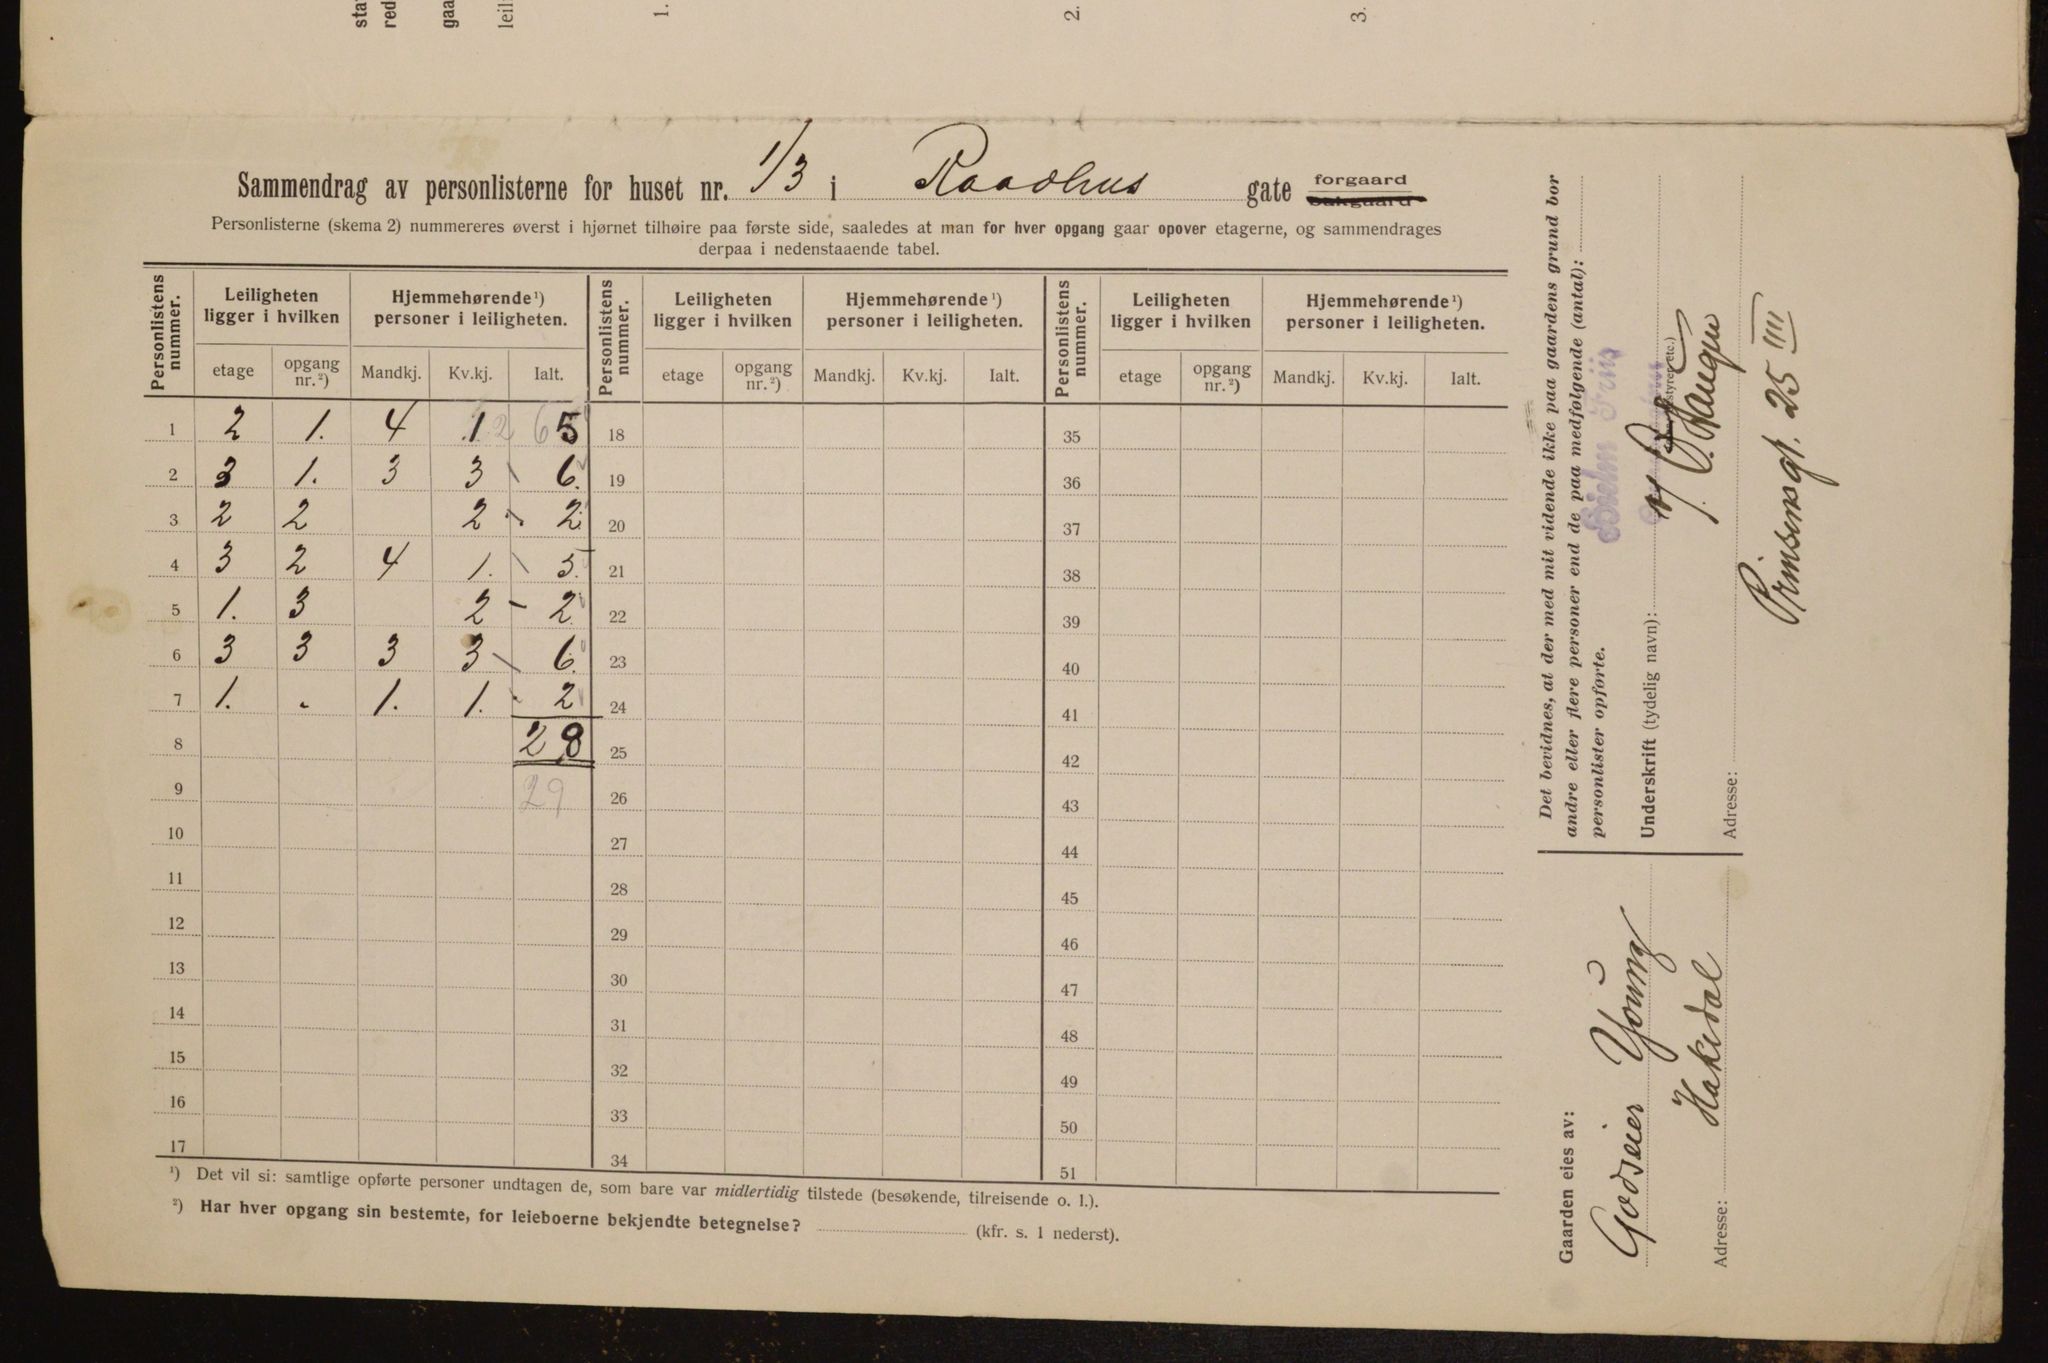 1.
2.
3.
Sammendrag av personlisterne for huset nr. 1/3 i Raadhus gate forgaard
Personlisterne (skema 2) nummereres øverst i hjørnet tilhøire paa første side, saaledes at man for hver opgang gaar opover etagerne, og sammendrages
derpaa i nedenstaaende tabel.
Personlistens nummer. Leiligheten ligger i hvilken Hjemmehørende ¹) personer i leiligheten. Personlistens nummer. Leiligheten ligger i hvilken Hjemmehørende ¹) personer i leiligheten. Personlistens nummer. Leiligheten ligger i hvilken Hjemmehørende ¹) personer i leiligheten.
etage opgang nr. ²) Mandkj. Kv.kj. Ialt. etage opgang nr. ²) Mandkj. Kv.kj. Ialt. etage opgang nr. ²) Mandkj. Kv.kj. Ialt.
1 2 1. 4 1 2 6 5 18 35
2 3 1. 3 3 6. 19 36
3 2 2 2 2 20 37
4 3 2 4 1. 5. 21 38
5 1. 3 2 2 22 39
6 3 3 3 3 6. 23 40
7 1. 1. 1. 2 24 41
8 28 25 42
9 29 26 43
10 27 44
11 28 45
12 29 46
13 30 47
14 31 48
15 32 49
16 33 50
17 34 51
¹) Det vil si: samtlige opførte personer undtagen de, som bare var midlertidig tilstede (besøkende, tilreisende o. l.).
²) Har hver opgang sin bestemte, for leieboerne bekjendte betegnelse? (kfr. s. 1 nederst).
Det bevidnes, at der med mit vidende ikke paa gaardens grund bor
andre eller flere personer end de paa medfølgende (antal):
personlister opførte.
Underskrift (tydelig navn):
Adresse: Prinsensgt. 25 IIII
Gaarden eies av:
Godseier Young
Adresse: Hakedal